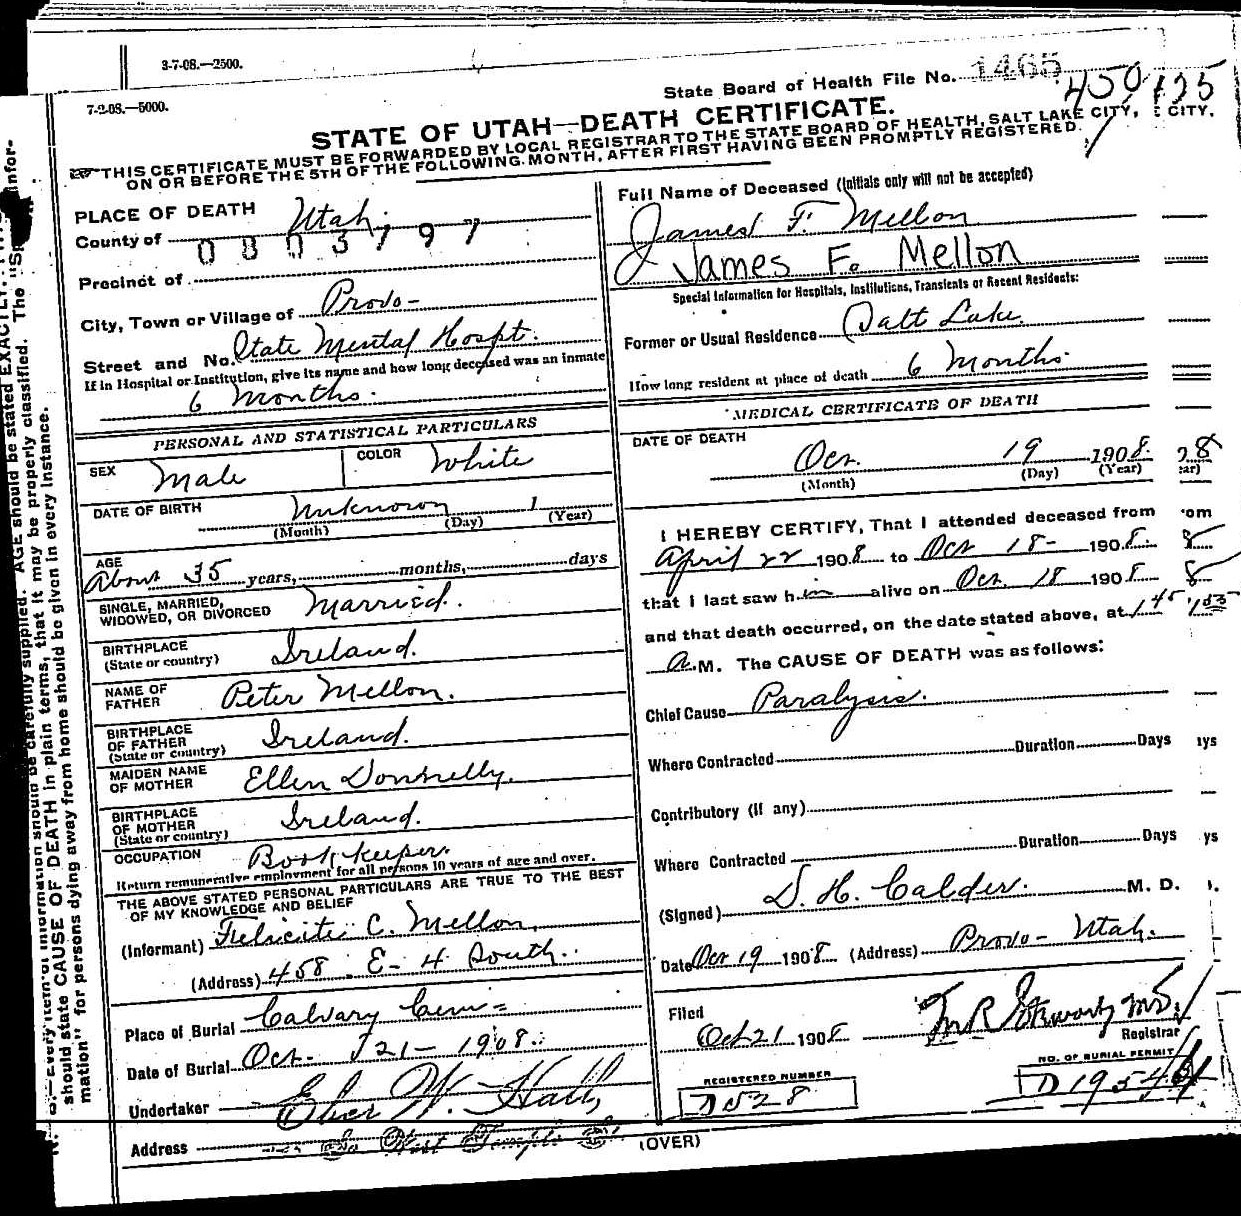 3-7-08.—2500.
7-2-08.—5000.
State Board of Health File No. 1465
450 135
STATE OF UTAH—DEATH CERTIFICATE.
THIS CERTIFICATE MUST BE FORWARDED BY LOCAL REGISTRAR TO THE STATE BOARD OF HEALTH, SALT LAKE CITY, CITY,
ON OR BEFORE THE 5TH OF THE FOLLOWING MONTH, AFTER FIRST HAVING BEEN PROMPTLY REGISTERED.
PLACE OF DEATH
County of Utah.
0803797
Precinct of
City, Town or Village of Provo-
Street and No. State Mental Hospt.
If in Hospital or Institution, give its name and how long deceased was an inmate
6 Months.
PERSONAL AND STATISTICAL PARTICULARS
SEX Male COLOR White
DATE OF BIRTH Unknown 1
(Month) (Day) (Year)
AGE
About 35 years, months, days
SINGLE, MARRIED,
WIDOWED, OR DIVORCED Married.
BIRTHPLACE
(State or country) Ireland.
NAME OF
FATHER Peter Mellon.
BIRTHPLACE
OF FATHER
(State or country) Ireland.
MAIDEN NAME
OF MOTHER Ellen Donnelly.
BIRTHPLACE
OF MOTHER
(State or country) Ireland.
OCCUPATION Book keeper.
Return remunerative employment for all persons 10 years of age and over.
THE ABOVE STATED PERSONAL PARTICULARS ARE TRUE TO THE BEST
OF MY KNOWLEDGE AND BELIEF
(Informant) Felicite C. Mellon,
(Address) 458 E- 4 South.
Place of Burial Calvary Cem
Date of Burial Oct. 21- 1908.
Undertaker Eber W. Hall,
Address So West Temple St.
(OVER)
Full Name of Deceased (Initials only will not be accepted)
James F. Mellon
James F. Mellon
Special Information for Hospitals, Institutions, Transients or Recent Residents:
Former or Usual Residence Salt Lake
How long resident at place of death 6 Months.
MEDICAL CERTIFICATE OF DEATH
DATE OF DEATH
Oct. 19 1908.
(Month) (Day) (Year)
I HEREBY CERTIFY, That I attended deceased from
April 22 1908 to Oct 18- 1908.
that I last saw him alive on Oct. 18 1908
and that death occurred, on the date stated above, at 1 45
a.M. The CAUSE OF DEATH was as follows:
Chief Cause Paralysis.
Where Contracted Duration Days
Contributory (if any)
Where Contracted Duration Days
(Signed) D. H. Calder. M. D.
Date Oct 19 1908 (Address) Provo- Utah.
Filed
Oct 21 1908
Registrar
REGISTERED NUMBER
D 528
NO. OF BURIAL PERMIT
D 1954
should state CAUSE OF DEATH in plain terms, that it may be properly classified. The
mation" for persons dying away from home should be given in every instance.